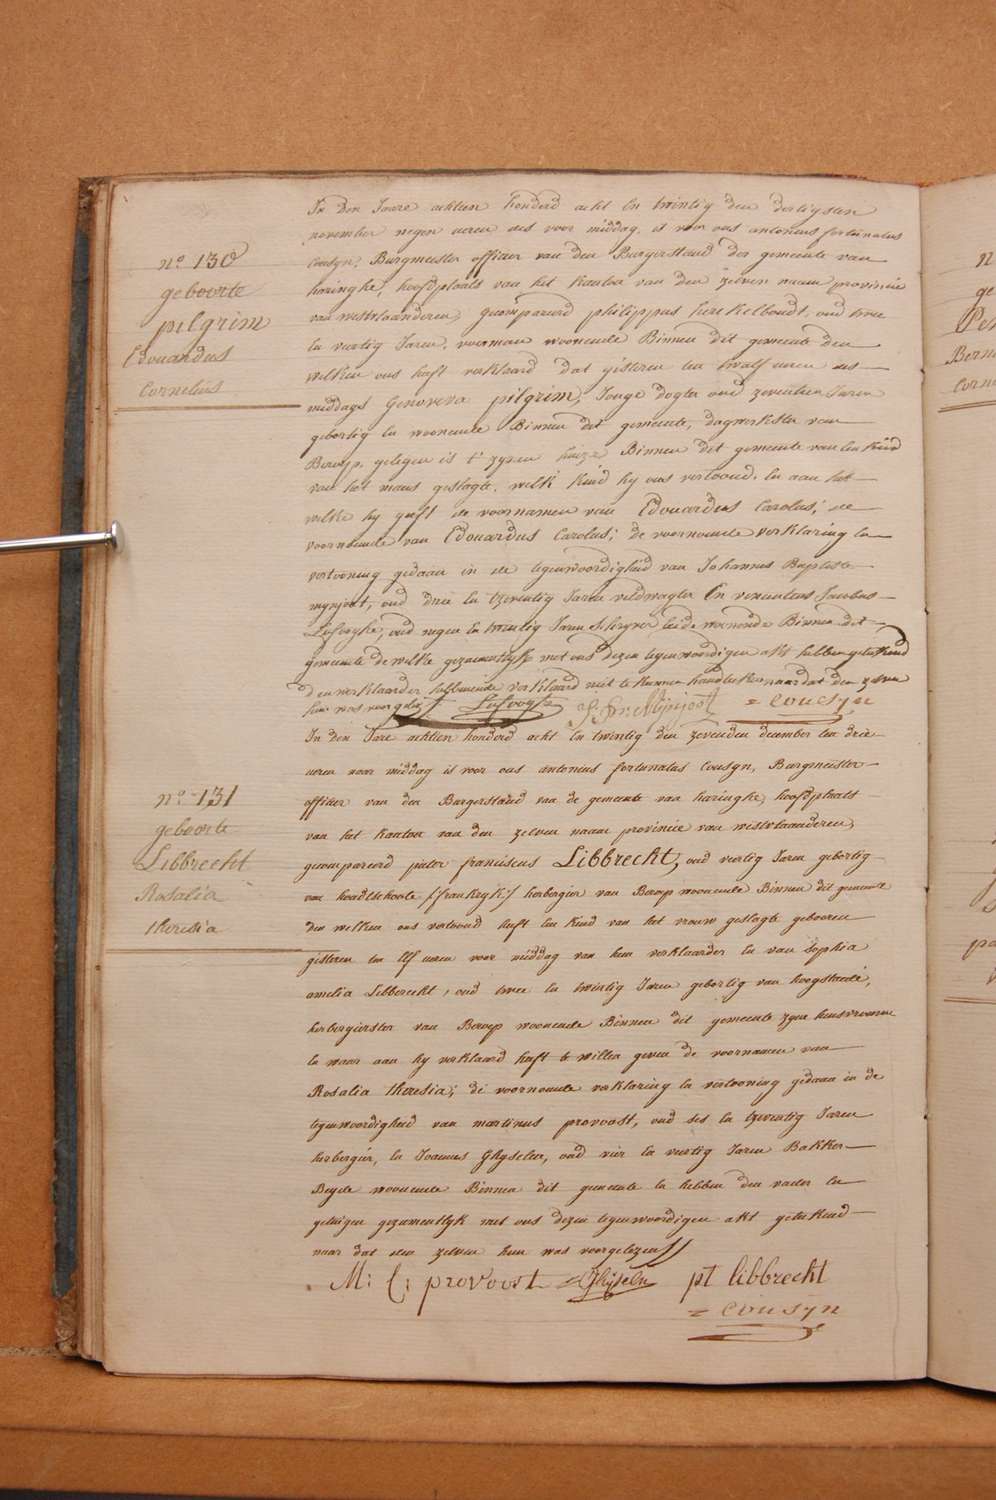 nº 130
geboorte
pilgrim
Edouardus
Cornelius
In den Jaare achtien honderd acht en twintig den dertigsten
november negen ueren des voor middag, is voor ons antonius fortunatus
Cousyn, Burgmeester officier van den Burgerstand der gemeente van
haringhe, hoofdplaats van het kanton van den zelven naam provincie
van westvlaanderen, gecompareerd philippus herrekelboudt, oud twee
en viertig Jaren, woonende Binnen dit gemeente den
welken ons heeft verklaard dat gisteren ten twalf uren des
middags Genoveva pilgrim, Jonge dogter oud zeventien Jaren
gebortig en woonende Binnen dit gemeente, dagwerkster van
Beroep, gelegen is t' zynen huize Binnen dit gemeente van een kind
van het mans geslagte, welk kind hy ons vertoond, en aan het
welke hy geeft de voornamen van Edouardus Carolus; de
voornoemde van Edouardus Carolus; de voornoemde verklaring en
vertooning gedaan in de tegenwoordigheid van Johannes Baptiste
mynjoot, oud drie en tzeventig Jaren veldwagter En vincentius Jacobus
oud negen en twintig Jaren Schryver beide woonende Binnen dit
gemeente dewelke gezamentlyk met ons dezen tegenwoordigen akt hebben geteekend
den verklaarder hebbende verklaard niet te kunnen naar dat den zelven
hun was voorgelezen
Mijnjoot = cousyn
nº 131
geboorte
Libbrecht
Rosalia
theresia
In den Jare achtien honderd acht en twintig den zevenden december ten drie
ueren naar middag is voor ons antonius fortunatus Cousyn, Burgmeester
officier van den Burgerstand van de gemeente van haringhe, hoofdplaats
van het kanton van den zelven naam provincie van westvlaanderen,
gecompareerd pieter franciscus Libbrecht, oud viertig Jaren gebortig
van hondtschoote /:frankryk:/ herbergier van Beroep woonende Binnen dit gemeente
den welken ons vertoond heeft een kind van het vrouw geslagte gebooren
gisteren ten elf ueren voor middag van hem verklaarder en van Sophia
amelia Libbrecht, oud twee en twintig Jaren gebortig van hoogstaede,
herbergierster van Beroep woonende Binnen dit gemeente zyne huisvrouwe
en waar aan hy verklaard heeft te willen geven de voornamen van
Rosalia theresia; de voornoemde verklaring en vertooning gedaan in de
tegenwoordigheid van martinus provoost, oud ses en tzeventig Jaren
herbergier, en Joannes Ghyselen, oud vier en viertig Jaren Bakker
Beyde woonende Binnen dit gemeente en hebben den vader en
getuigen gezamentlyk met ons dezen tegenwoordigen akt geteekend
naar dat den zelven hun was voorgelezen
M: C: provoost = Ghijselen pt libbrecht
= cousyn